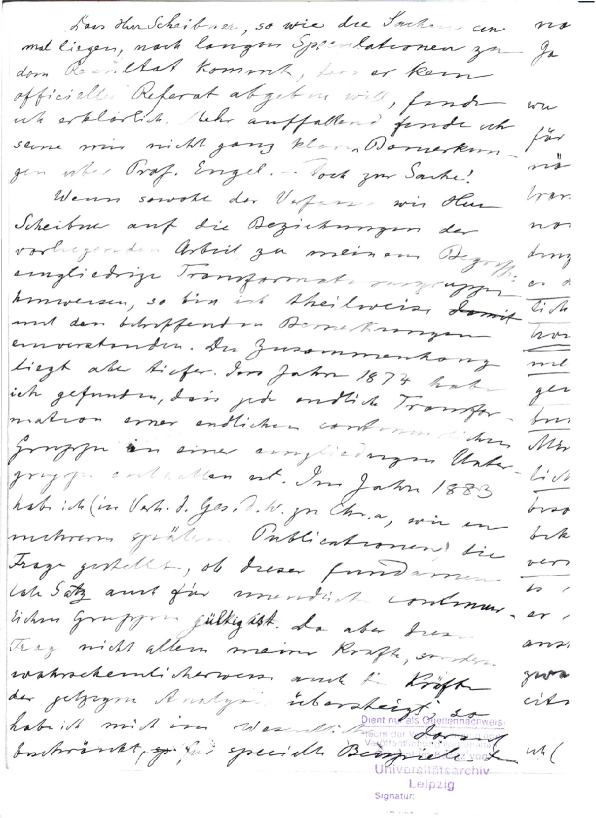 Dass Herr Scheibner, so wie die Sachen ein
mal liegen, nach langen Speculationen zu
dem Resultat kommt, dass er kein
officielles Referat abgeben will, finde
ich erklärlich. Mehr auffallend finde ich
seine mir nicht ganz klaren Bemerkun-
gen über Prof. Engel. – Doch zur Sache!
Wenn sowohl der Verfasser wie Herr
Scheibner auf die Beziehungen der
vorliegenden Arbeit zu meinem Begriffe:
eingliedrige Transformationsgruppe
hinweisen, so bin ich theilweise damit
mit den betreffenden Bemerkungen
einverstanden. Der Zusammenhang
liegt aber tiefer. Im Jahre 1874 habe
ich gefunden, dass jede endliche Transfor-
mation einer endlichen continuirlichen
Gruppe in einer eingliedrigen Unter-
gruppe enthalten ist. Im Jahre 1883
hab ich (in Verh. d. Ges. d. W. zu Chr.a, wie in
mehreren späteren Publicationen) die
Frage gestellt, ob dieser fundamen
tale Satz auch für unendliche continuir-
lichen Gruppen gültig ist. Da aber diese
Frage nicht allein meine Kräfte, sondern
wahrscheinlicherweise auch die Kräfte
der jetzigen Analysis übersteigt, so
hab ich mich im Wesentlichen darauf
beschränkt, specielle Beispiele
Dient nur als Quellennachweis
Universitätsarchiv
Leipzig
Signatur:
für